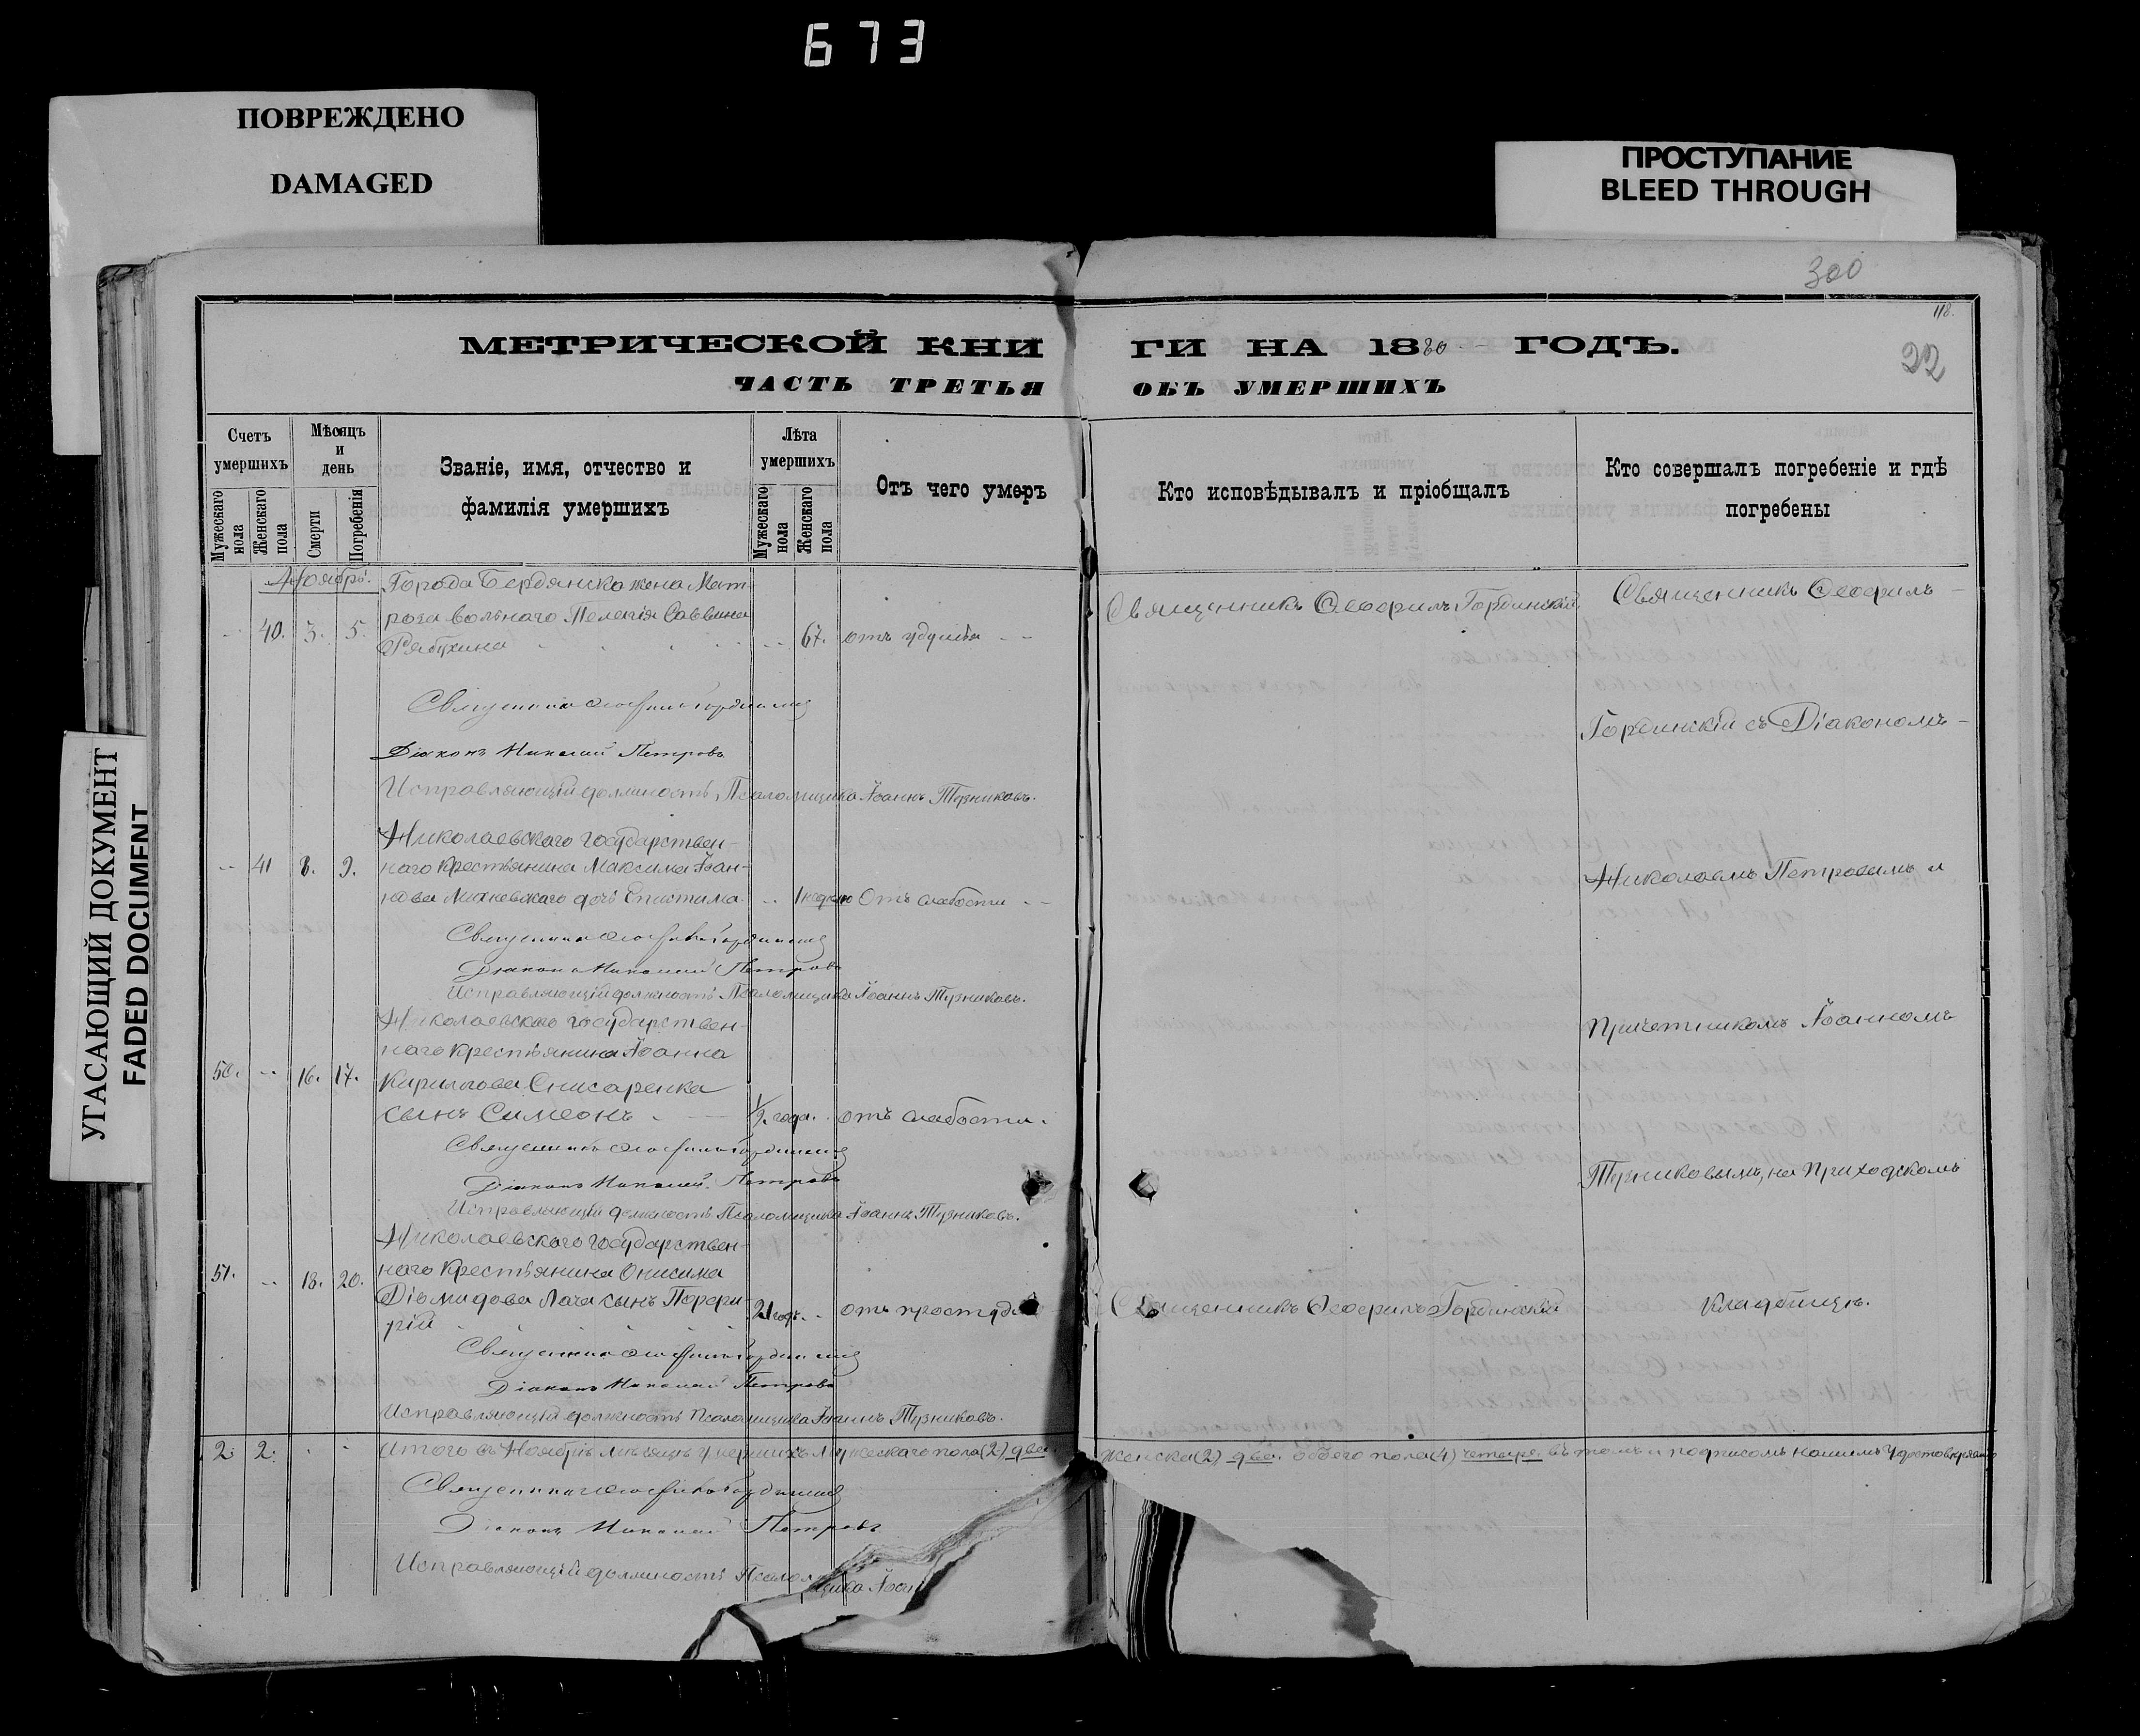 673
ПОВРЕЖДЕНО
DAMAGED
ПРОСТУПАНИЕ
BLEED THROUGH
УГАСАЮЩИЙ ДОКУМЕНТ
FADED DOCUMENT
300
118.
22
МЕТРИЧЕСКОЙ КНИ ГИ НА 1880 ГОДЪ.
ЧАСТЬ ТРЕТЬЯ ОБЪ УМЕРШИХЪ
Счетъ умершихъ
Мужескаго пола
Женскаго пола
Мѣсяцъ и день
Смерти
Погребенія
Званіе, имя, отчество и фамилія умершихъ
Лѣта умершихъ
Мужескаго пола
Женскаго пола
Отъ чего умеръ
Кто исповѣдывалъ и пріобщалъ
Кто совершалъ погребеніе и гдѣ погребены
Ноябрь.
Города Бердянска жена Мат-
40. 3. 5. роза вольнаго Пелагія Саввина
Рябухина 67. отъ удушья
Священникъ Ѳеофилъ Гординскій
Священникъ Ѳеофилъ
Священникъ Ѳеофилъ Гординскій
Гординскій съ Діакономъ
Діаконъ Николай Петровъ
Исправляющій должность Псаломщика Іоаннъ Тузниковъ.
Николаевскаго государствен-
41 8. 9. наго крестьянина Максима Іоан-
нова дочь Епистима 1 недѣлю Отъ слабости
Николаемъ Петровымъ и
Священникъ Ѳеофилъ Гординскій
Діаконъ Николай Петровъ
Исправляющій должность Псаломщика Іоаннъ Тузниковъ.
Николаевскаго государствен-
наго крестьянина Іоанна
50. 16. 17. Кириллова Снисаренка
сынъ Симеонъ 1/2 года. отъ слабости.
Причетникомъ Іоанномъ
Священникъ Ѳеофилъ Гординскій
Діаконъ Николай Петровъ
Исправляющій должность Псаломщика Іоаннъ Тузниковъ.
Тузниковымъ, на приходскомъ
Николаевскаго государствен-
51. 18. 20. наго крестьянина Онисима
Діомидова Лача сынъ Порфи-
рій 21 годъ. отъ простуды
Священникъ Ѳеофилъ Гординскій
кладбищѣ.
Священникъ Ѳеофилъ Гординскій
Діаконъ Николай Петровъ
Исправляющій должность Псаломщика Іоаннъ Тузниковъ.
2. 2. Итого въ Ноябрѣ мѣсяцѣ умершихъ мужескаго пола (2) два. Женска (2) две. обоего пола (4) четыре. въ томъ и подписомъ нашимъ удостовѣряемъ
Священникъ Ѳеофилъ Гординскій
Діаконъ Николай Петровъ
Исправляющій должность Псаломщика